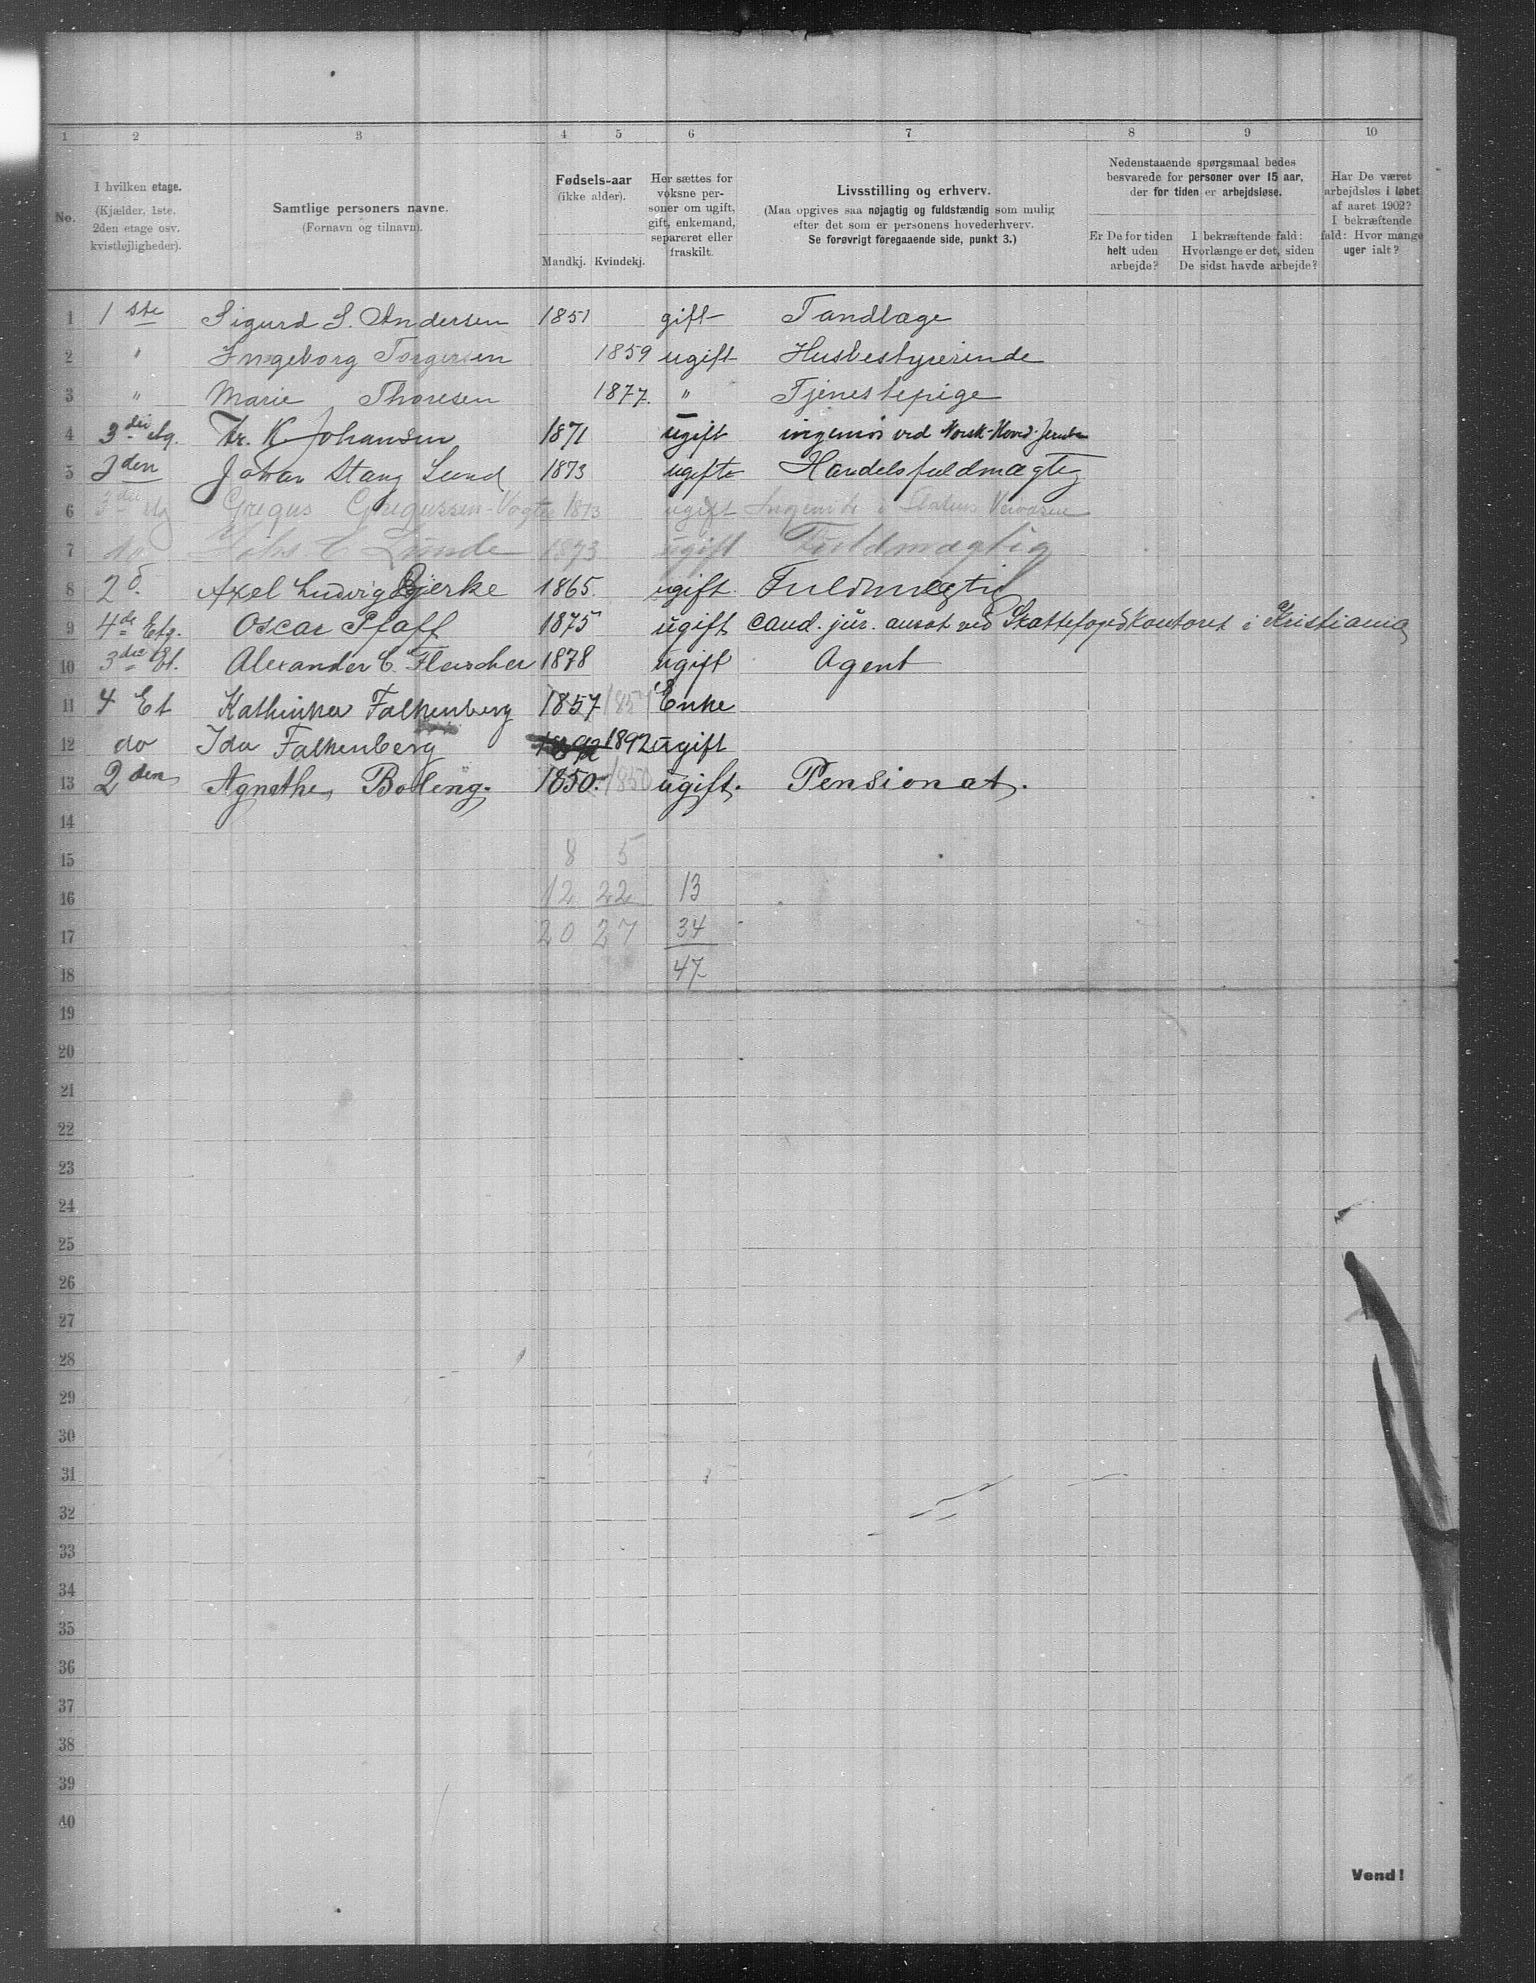 1 2 3 4 5 6 7 8 9 10
No.
I hvilken etage.
(Kjælder, 1ste.
2den etage osv.
kvistlejligheder).
Samtlige personers navne.
(Fornavn og tilnavn).
Fødsels-aar
(ikke alder).
Mandkj. Kvindekj.
Her sættes for
voksne per-
soner om ugift,
gift, enkemand,
separeret eller
fraskilt.
Livsstilling og erhverv.
(Maa opgives saa nøjagtig og fuldstændig som mulig
efter det som er personens hovederhverv.
Se forøvrigt foregaaende side, punkt 3.)
Nedenstaaende spørgsmaal bedes
besvarede for personer over 15 aar,
der for tiden er arbejdsløse.
Er De for tiden
helt uden
arbejde?
I bekræftende fald:
Hvorlænge er det, siden
De sidst havde arbejde?
Har De været
arbejdsløs i løbet
af aaret 1902?
I bekræftende
fald: Hvor mange
uger ialt?
1 1 ste Sigurd S. Andersen 1851 gift Tandlæge
2 " Ingeborg Torgersen 1859 ugift Husbestyrerinde
3 " Marie Thoresen 1877. " Tjenestepige
4 3die Etg. Thr. K. Johansen 1871 ugift ingeniør ved Norsk Hoved-Jernb
5 2den Johan Stang Lund 1873 ugift Handelsfuldmægtig
6 3die Etg Gregus Gregussen-Vogt 1873 ugift Ingeniør i Statens
7 do Johs. E. Lunde 1873 ugift Fuldmægtig
8 2d. Axel Ludvig Bjerke 1865. ugift. Fuldmægtig
9 4de Etg. Oscar Pfaff 1875 ugift cand. jur. ansat ved Skattefogedkontoret i Kristiania
10 3die Et. Alexander C. Fleischer 1878 ugift Agent
11 4 Et Kathinka Falkenberg 1857 1857 Enke
12 do Ida Falkenberg 1892 1892 ugift
13 2den Agnethe Boleng. 1850. 1850 ugift. Pensionat.
14
15 8 5
16 12 22 13
17 20 27 34
18 47
19
20
21
22
23
24
25
26
27
28
29
30
31
32
33
34
35
36
37
38
39
40
Vend!